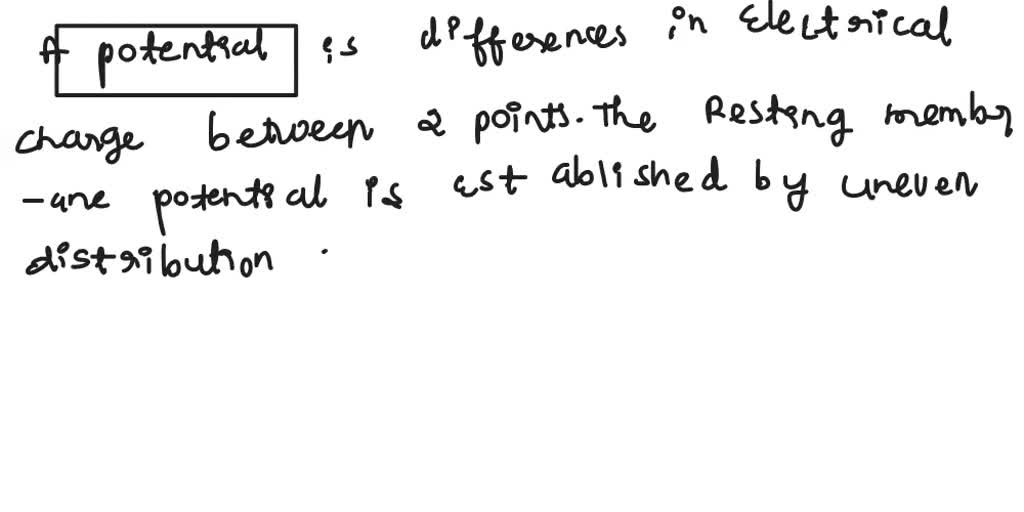 A potential is differences in Electrical
charge between 2 points. The Resting membr
-ane potential is established by uneven
distribution .